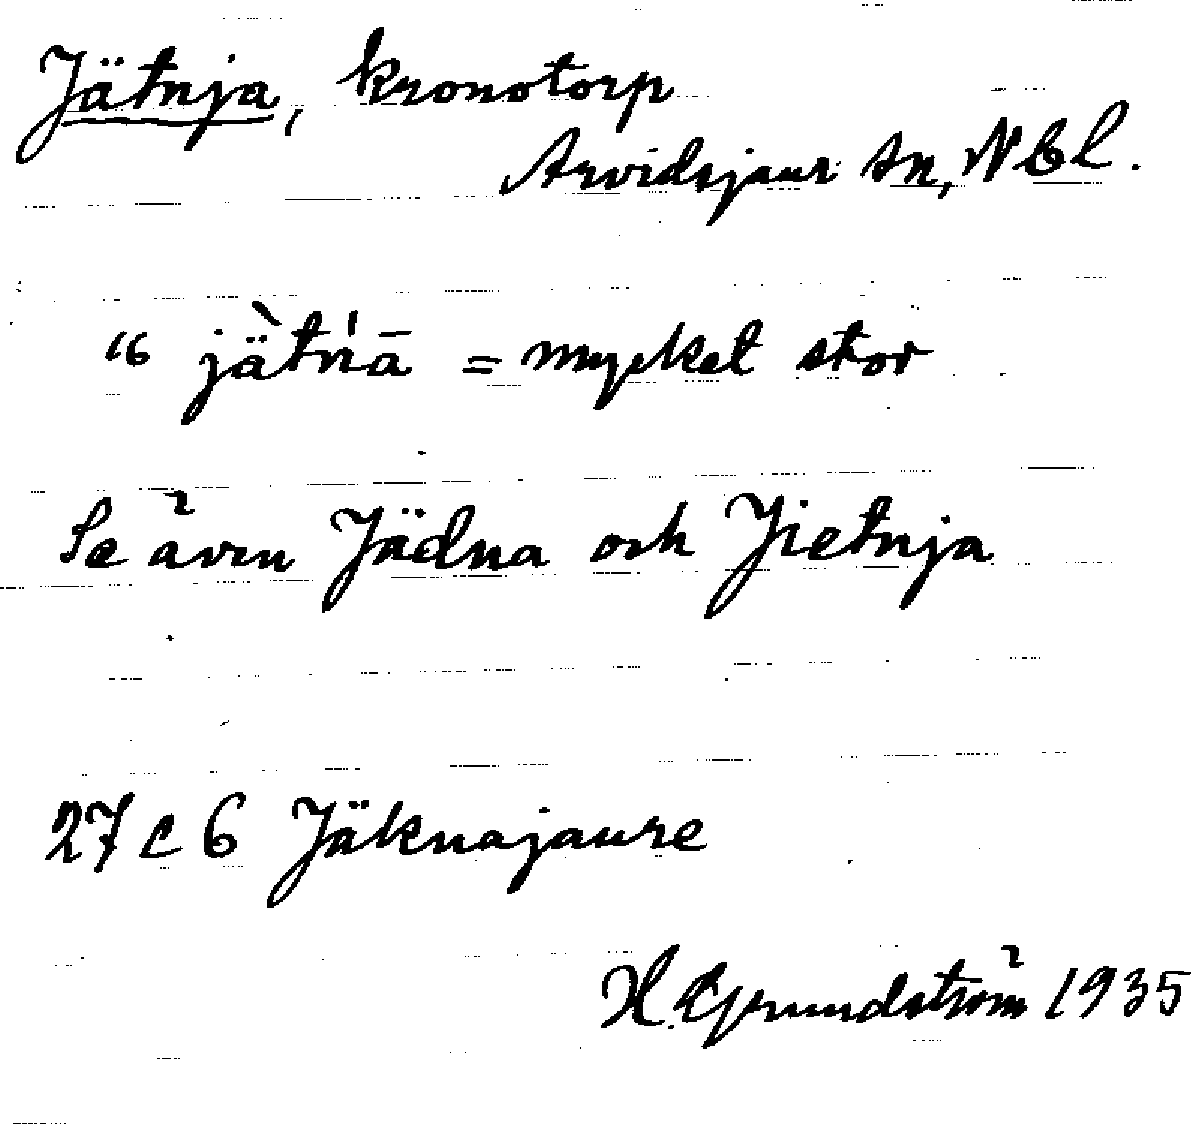 Jätnja, kronotorp
Arvidsjaur sn, Nbl.
“ jä̀tńā = mycket stor
Se även Jädna och Jietnja
27 C 6 Jäknajaure
H. Grundström 1935